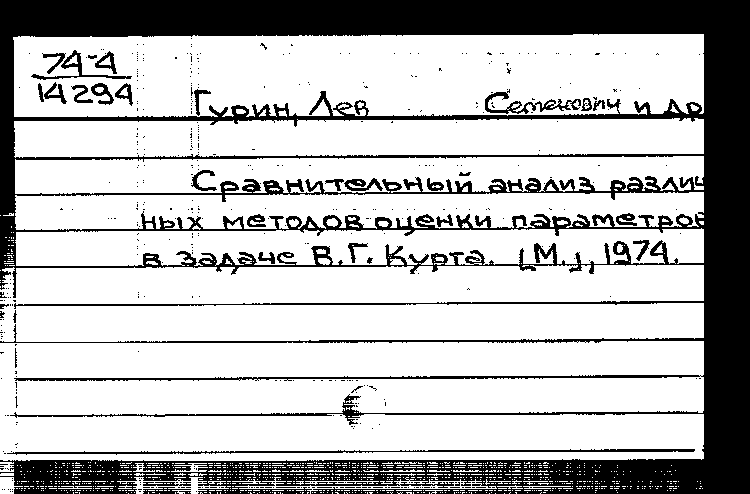 74-4
14294
Гурин, Лев Семенович и др
Сравнительный анализ различ
ных методов оценки параметров
в задаче В.Г. Курта. [М.], 1974.